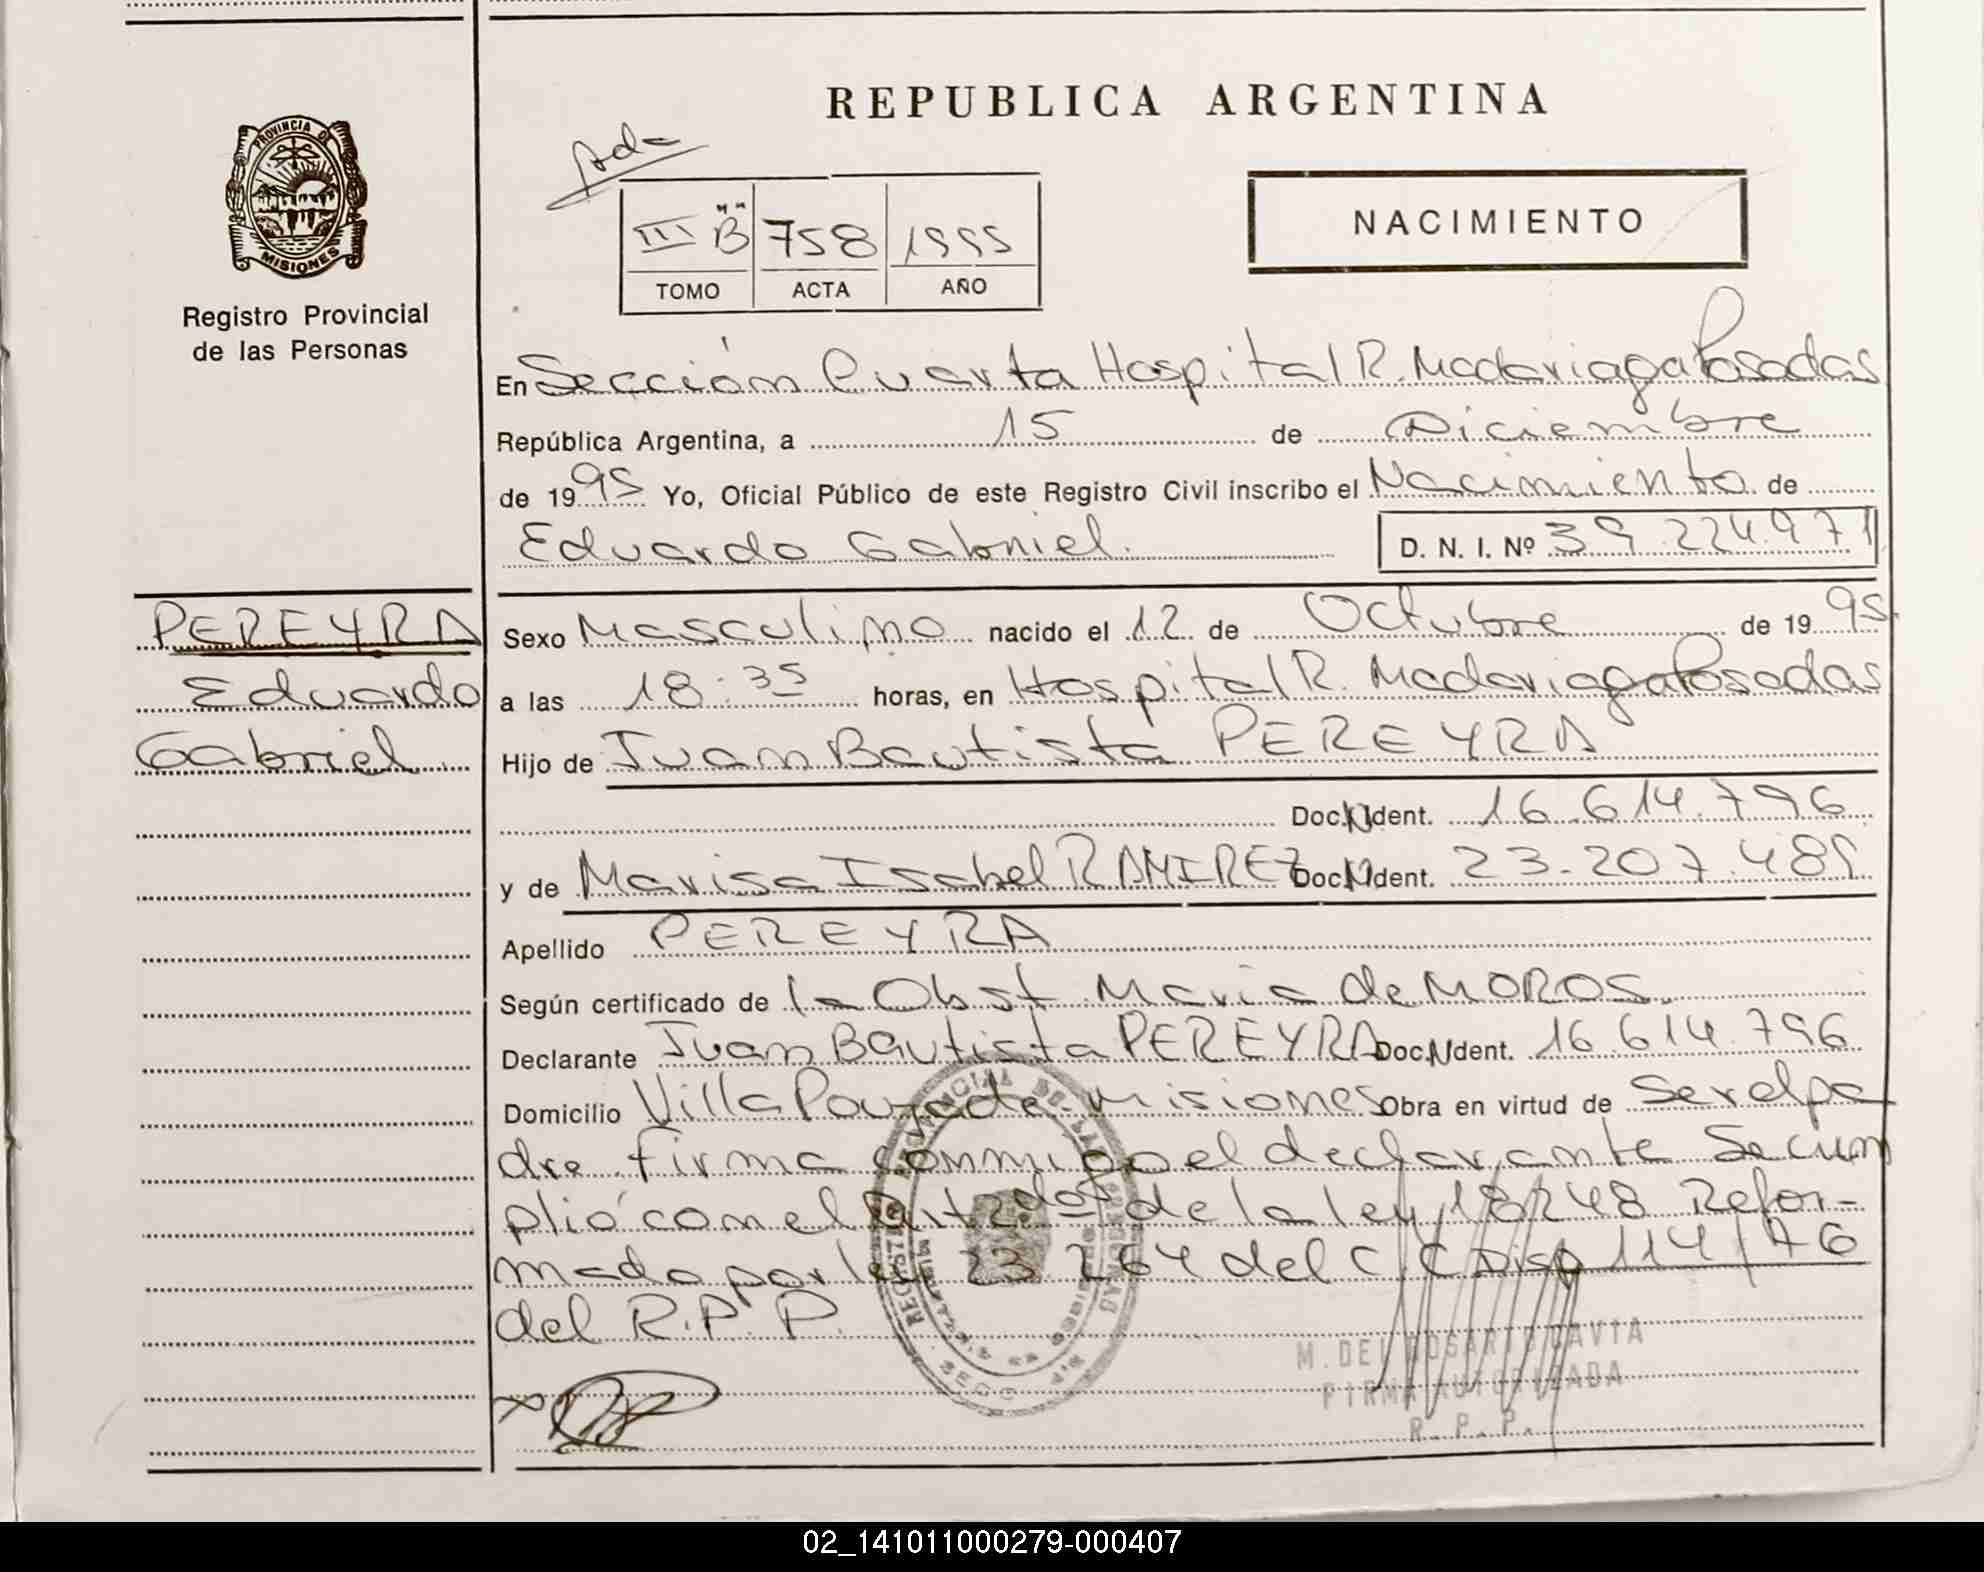 REPUBLICA ARGENTINA
PROVINCIA DE
MISIONES
Registro Provincial
de las Personas
III "B" 758 1995
TOMO ACTA AÑO
NACIMIENTO
En Sección Cuarta Hospital R. Madariaga Posadas
República Argentina, a 15 de Diciembre
de 1995 Yo, Oficial Público de este Registro Civil inscribo el Nacimiento de
Eduardo Gabriel. D. N. I. Nº 39.224.971
PEREYRA
Eduardo
Gabriel
Sexo Masculino nacido el 12 de Octubre de 1995.
a las 18:35 horas, en Hospital R. Madariaga Posadas
Hijo de Juan Bautista PEREYRA
Doc. Ident. 16.614.796
y de Marisa Isabel RAMIREZ Doc. Ident. 23.207.489
Apellido PEREYRA
Según certificado de la Obst Maria de MOROS.
Declarante Juan Bautista PEREYRA Doc. Ident. 16.614.796
Domicilio Villa Misiones Obra en virtud de Ser el pa
dre firma conmigo el declarante Se cum
plió con el Art 2do de la ley 18248 Refor-
mado por ley 23 264 del C C Disp 114/76
del R.P.P.
M. DEL ROSARIO GAVIA
FIRMA AUTORIZADA
R. P. P.
02_141011000279-000407